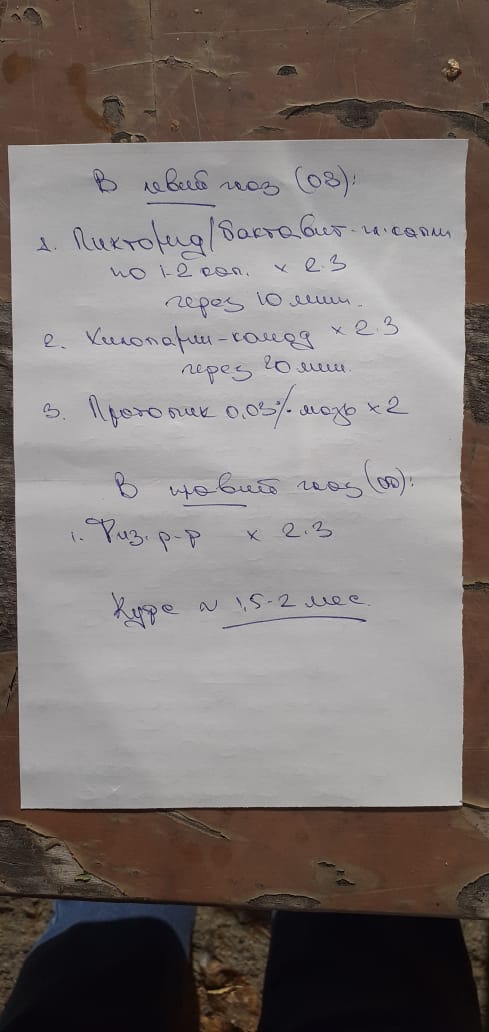 В левый глаз (OS):
1. Пиктоοид/бактавит-гл.капли
по 1-2 кап. х 2-3
через 10 мин.
2. Хилопарин-комод х 2-3
через 20 мин.
3. Протопик 0,03% мазь х 2
В правый глаз (OD):
1. Физ. р-р х 2-3
Курс ~ 1,5-2 мес.